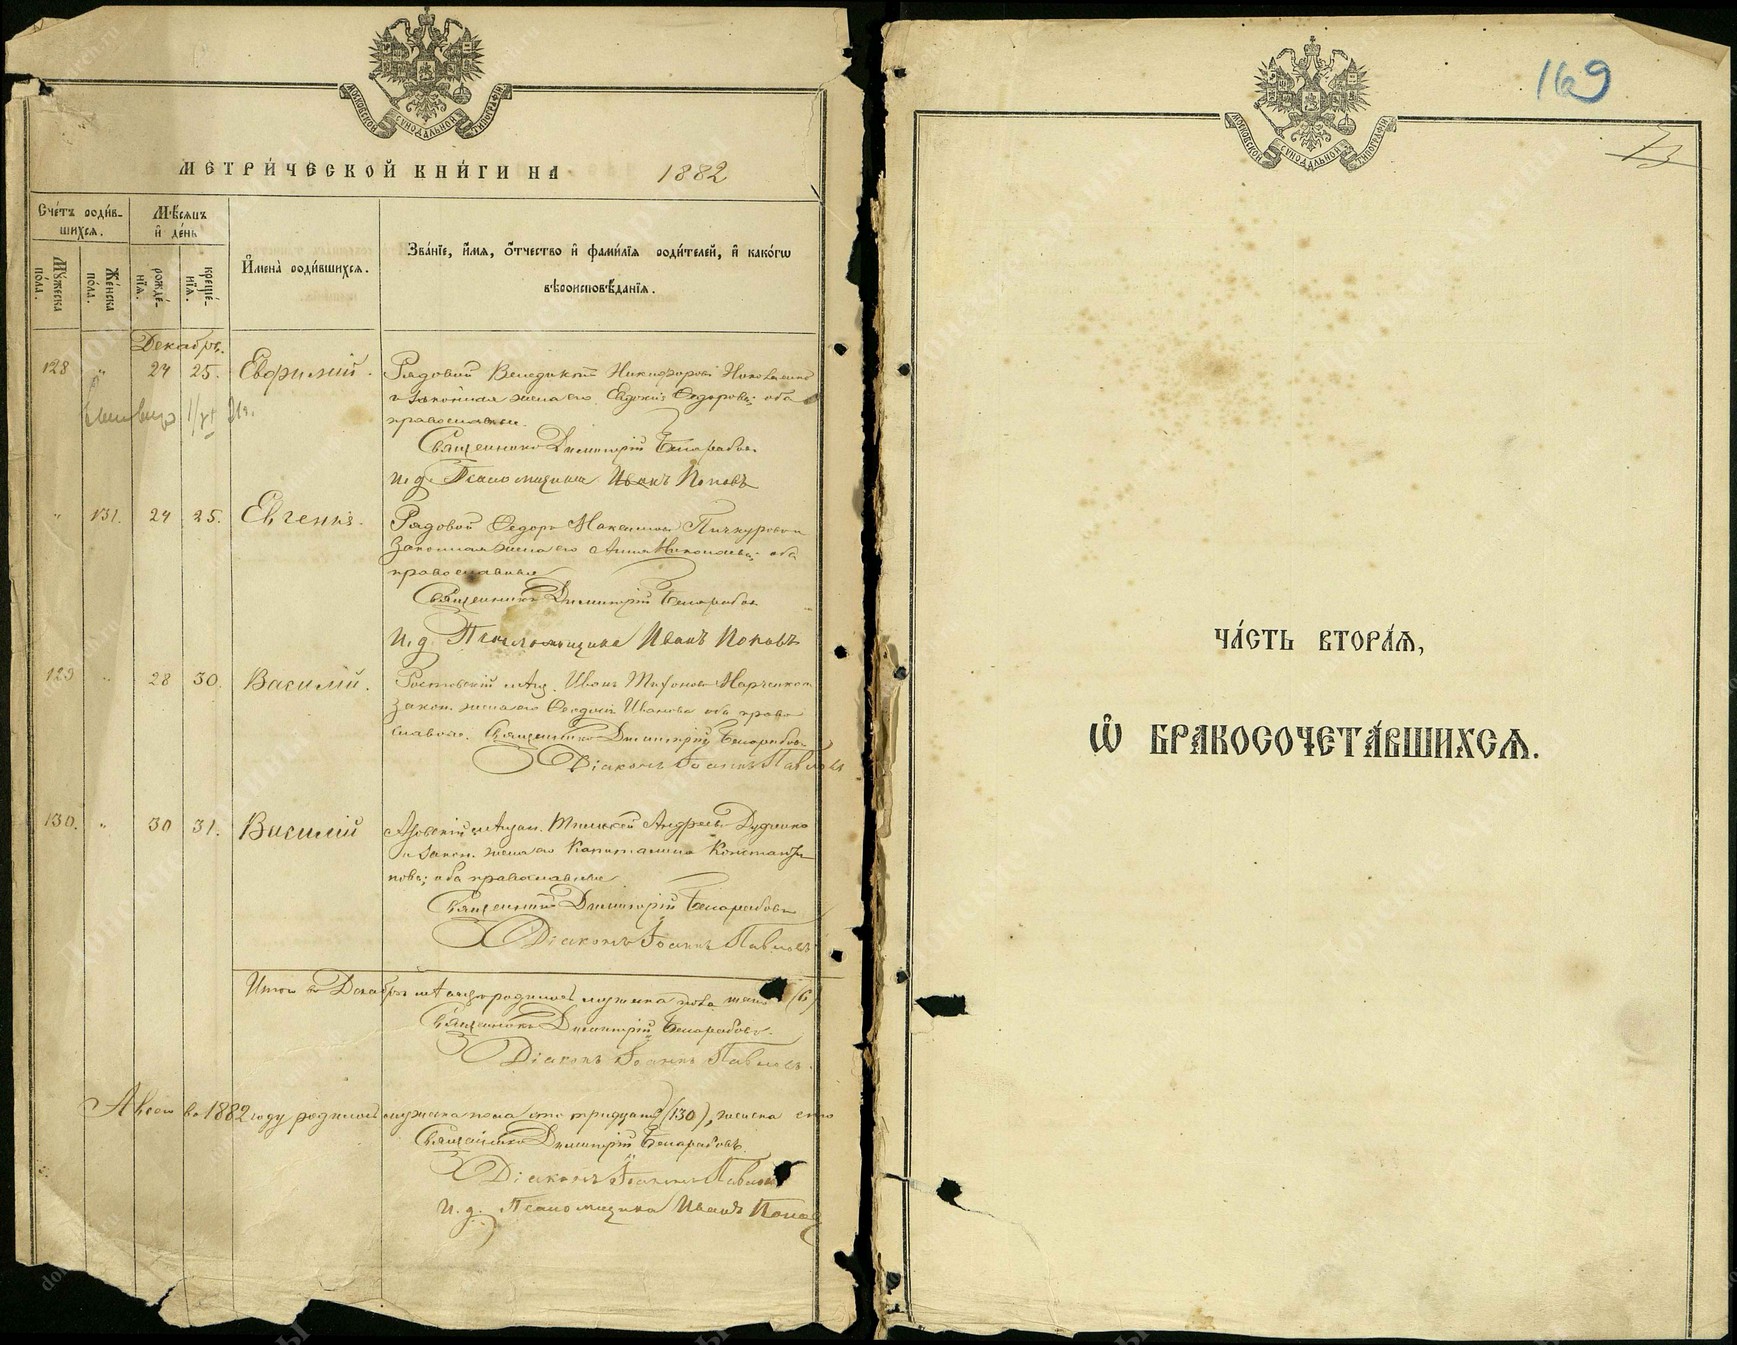 МОСКОВСКОЙ СѴНОДАЛЬНОЙ ТИПОГРАФІИ
МЕТРИ́ЧЕСКОЙ КНИ́ГИ НА 1882
Сче́тъ роди́в-
шихсѧ.
Мѣ́сѧцъ
и҆ де́нь
Мꙋ́жеска по́ла.
Же́нска по́ла.
рожде́-
нїѧ.
креще́-
нїѧ.
И҆мена̀ роди́вшихсѧ.
Зва́нїе, и҆́мѧ, ѻ҆́тчество и҆ фами́лїѧ роди́телей, и҆ како́гѡ
вѣроисповѣ́данїѧ.
Декабрь.
128 " 24 25. Евфимій. Рядовой Венедиктъ Никифоровъ
и законная жена его Евдокія Ѳедорова; оба
православные.
Священникъ Димитрій Бѣларабовъ
И. д. Псаломщика Иванъ Поповъ
" 131. 24 25. Евгенія. Рядовой Ѳедоръ Максимовъ
законная жена его Анна Николаева; оба
православные
Священникъ Димитрій Бѣларабовъ
И. д. Псаломщика Иванъ Поповъ
129 " 28 30. Василій. Ростовскій мѣщ. Иванъ Марченко
закон. жена его Ѳеодосія Иванова оба право-
славные. Священникъ Димитрій Бѣларабовъ
Діаконъ Іоаннъ Павловъ
130. " 30 31. Василій Азовскій мѣщан. Тимоѳей Андреевъ Дудченко
и закон. жена его Капиталина Константи-
нова; оба православные
Священникъ Димитрій Бѣларабовъ
Діаконъ Іоаннъ Павловъ
Итого въ Декабрѣ мѣсяцѣ родилось мужеска пола (6)
Священникъ Димитрій Бѣларабовъ.
Діаконъ Іоаннъ Павловъ.
А всего въ 1882 году родилось мужеска пола сто тридцать (130), женска сто
Священникъ Димитрій Бѣларабовъ.
Діаконъ Іоаннъ Павловъ
И. д. Псаломщика Иванъ Поповъ
169
МОСКОВСКОЙ СѴНОДАЛЬНОЙ ТИПОГРАФІИ
ЧА́СТЬ ВТОРА́Ѧ,
Ѽ БРАКОСОЧЕТА́ВШИХСѦ.